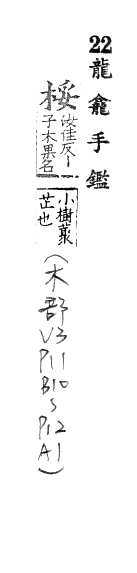 22龍龕手鑑
桵汝佳反ー子木果名小樹叢芷也(木部V3P11B10SP12A1)